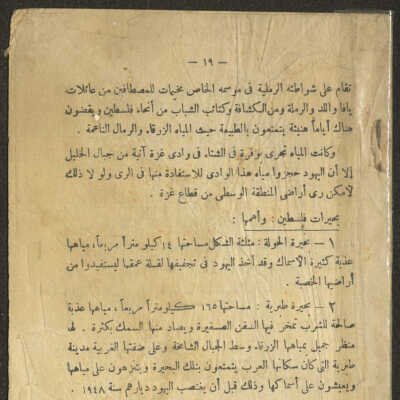 — ١٩ —
تقام على شواطئه الرملية فى موسمه الخاص مخيمات للمصطافين من عائلات
يافا واللد والرملة ومن الكشافة وكتائب الشباب من أنحاء فلسطين ويقضون
هناك أياماً هنيئة يتمتعون بالطبيعة حيث المياه الزرقاء والرمال الناعمة .
وكانت المياه تجرى بوفرة فى الشتاء فى وادى غزة آتية من جبال الخليل
إلا أن اليهود حجزوا مياه هذا الوادى للاستفادة منها فى الرى ولو لا ذلك
لامكن رى أراضى المنطقة الوسطى من قطاع غزة .
بحيرات فلسطين : وأهمها :
١ — بحيرة الحولة : مثلثة الشكل مساحتها ١٤ كيلو متراً مربعاً ، مياهها
عذبة كثيرة الاسماك وقد أخذ اليهود فى تجفيفها لقلة عمقها ليستفيدوا من
أراضيها الخصبة .
٢ — بحيرة طبرية : مساحتها ١٦٥ كيلو متراً مربعاً ، مياهها عذبة
صالحة للشرب تمخر فيها السفن الصغيرة ويصاد منها السمك بكثرة . لها
منظر جميل بمياهها الزرقاء وسط الجبال الشامخة وعلى ضفتها الغربية مدينة
طبرية التى كان سكانها العرب يتمتعون بتلك البحيرة ويتنزهون على مياهها
ويعيشون على أسماكها وذلك قبل أن يغتصب اليهود ديارهم سنة ١٩٤٨ .